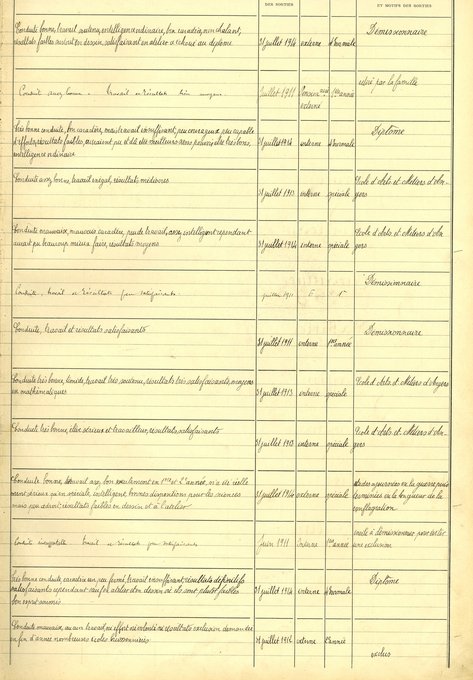 DES SORTIES
ET MOTIFS DES SORTIES
Conduite bonne, travail soutenu, intelligence ordinaire, bon caractère, nonchalant,
résultats faibles surtout en dessin, satisfaisant en atelier a échoué au diplôme
31 juillet 1914 externe 4e Normale Démissionnaire
Conduite assez bonne - travail et résultats très moyens
juillet 1911 externe 1ère année retiré par la famille
Très bonne conduite, bon caractère, mais travail insuffisant, peu courageux peu capable
d'efforts, résultats faibles, auraient pu être meilleurs sans
intelligence ordinaire
31 juillet 1914 externe 4e Normale Diplôme
Conduite assez bonne, travail inégal, résultats médiocres
31 juillet 1913 externe spéciale Ecole d'Arts et Métiers d'An-
gers
Conduite mauvaise, mauvais caractère, peu de travail, assez intelligent cependant
aurait pu beaucoup mieux faire, résultats moyens
31 juillet 1914 externe spéciale Ecole d'Arts et Métiers d'An-
gers
Conduite, travail et résultats peu satisfaisants
juillet 1911 Démissionnaire
Conduite, travail et résultats satisfaisants
31 juillet 1911 externe 1ère année Démissionnaire
Conduite très bonne, timide, travail très soutenu, résultats très satisfaisants, moyens
en mathématiques
31 juillet 1913 externe spéciale Ecole d'Arts et Métiers d'Angers
Conduite très bonne, élève sérieux et travailleur, résultats satisfaisants
31 juillet 1913 externe spéciale Ecole d'Arts et Métiers d'An-
gers
Conduite bonne, travail assez bon seulement en 1ère et 2e année, n'a été réelle-
ment sérieux qu'en spéciale, intelligent bonnes dispositions pour les sciences
mais peu adroit, résultats faibles en dessin et à l'atelier
31 juillet 1914 externe spéciale études ajournées vu la guerre, puis
terminées vu la longueur de la
conflagration
Conduite inacceptable travail et résultats peu satisfaisants
Juin 1911 Externe 1ère année invité à démissionner pour éviter
une exclusion
Très bonne conduite, caractère un peu fermé, travail insuffisant, résultats
satisfaisants cependant sauf en atelier et en dessin où ils sont plutôt faibles
bon esprit soumis
31 juillet 1914 externe 4e Normale Diplôme
Conduite mauvaise, aucun travail, ni effort ni volonté ni résultats exclusion demandée
en fin d'année nombreuses
31 juillet 1912 externe 2e année
exclus